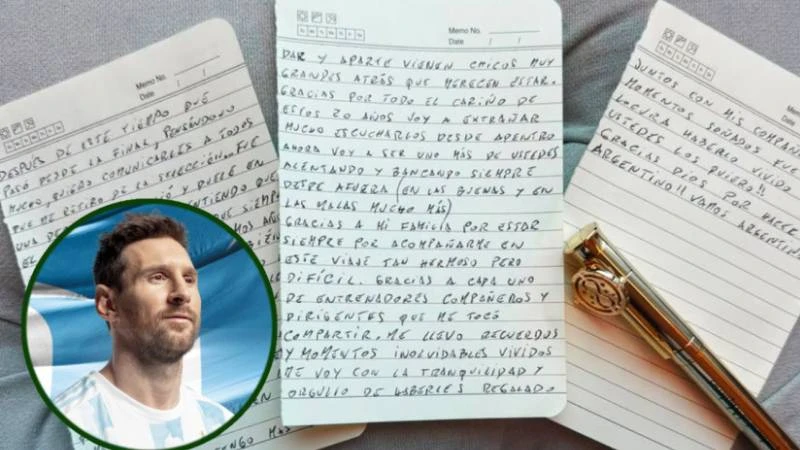 Memo No.
Date / /
DESPUÉS DE ESTE TIEMPO QUE
PASÓ DESDE LA FINAL, PENSÁNDOLO
MUCHO, QUIERO COMUNICARLES A TODOS
QUE ME RETIRO DE LA SELECCIÓN. FUE
UNA DE Y DUELE EN
EL QUE
AÑOS
TENGO MÁS
Memo No.
Date / /
DAR Y APARTE VIENEN CHICOS MUY
GRANDES ATRÁS QUE MERECEN ESTAR.
GRACIAS POR TODO EL CARIÑO DE
ESTOS 20 AÑOS VOY A EXTRAÑAR
MUCHO ESCUCHARLOS DESDE ADENTRO
AHORA VOY A SER UNO MÁS DE USTEDES
ALENTANDO Y BANCANDO SIEMPRE
DESDE AFUERA (EN LAS BUENAS Y EN
LAS MALAS MUCHO MÁS)
GRACIAS A MI FAMILIA POR ESTAR
SIEMPRE POR ACOMPAÑARME EN
ESTE VIAJE TAN HERMOSO PERO
DIFÍCIL. GRACIAS A CADA UNO
DE ENTRENADORES COMPAÑEROS Y
DIRIGENTES QUE ME TOCÓ
COMPARTIR. ME LLEVO RECUERDOS
Y MOMENTOS INOLVIDABLES VIVIDOS
ME VOY CON LA TRANQUILIDAD Y
ORGULLO DE HABERLES REGALADO
Memo No.
Date / /
JUNTOS CON MIS COMPAÑE
MOMENTOS SOÑADOS FUE
LOCURA HABERLO VIVIDO
USTEDES LOS QUIERO!!
GRACIAS DIOS POR HACER
ARGENTINO!! VAMOS ARGENTINA